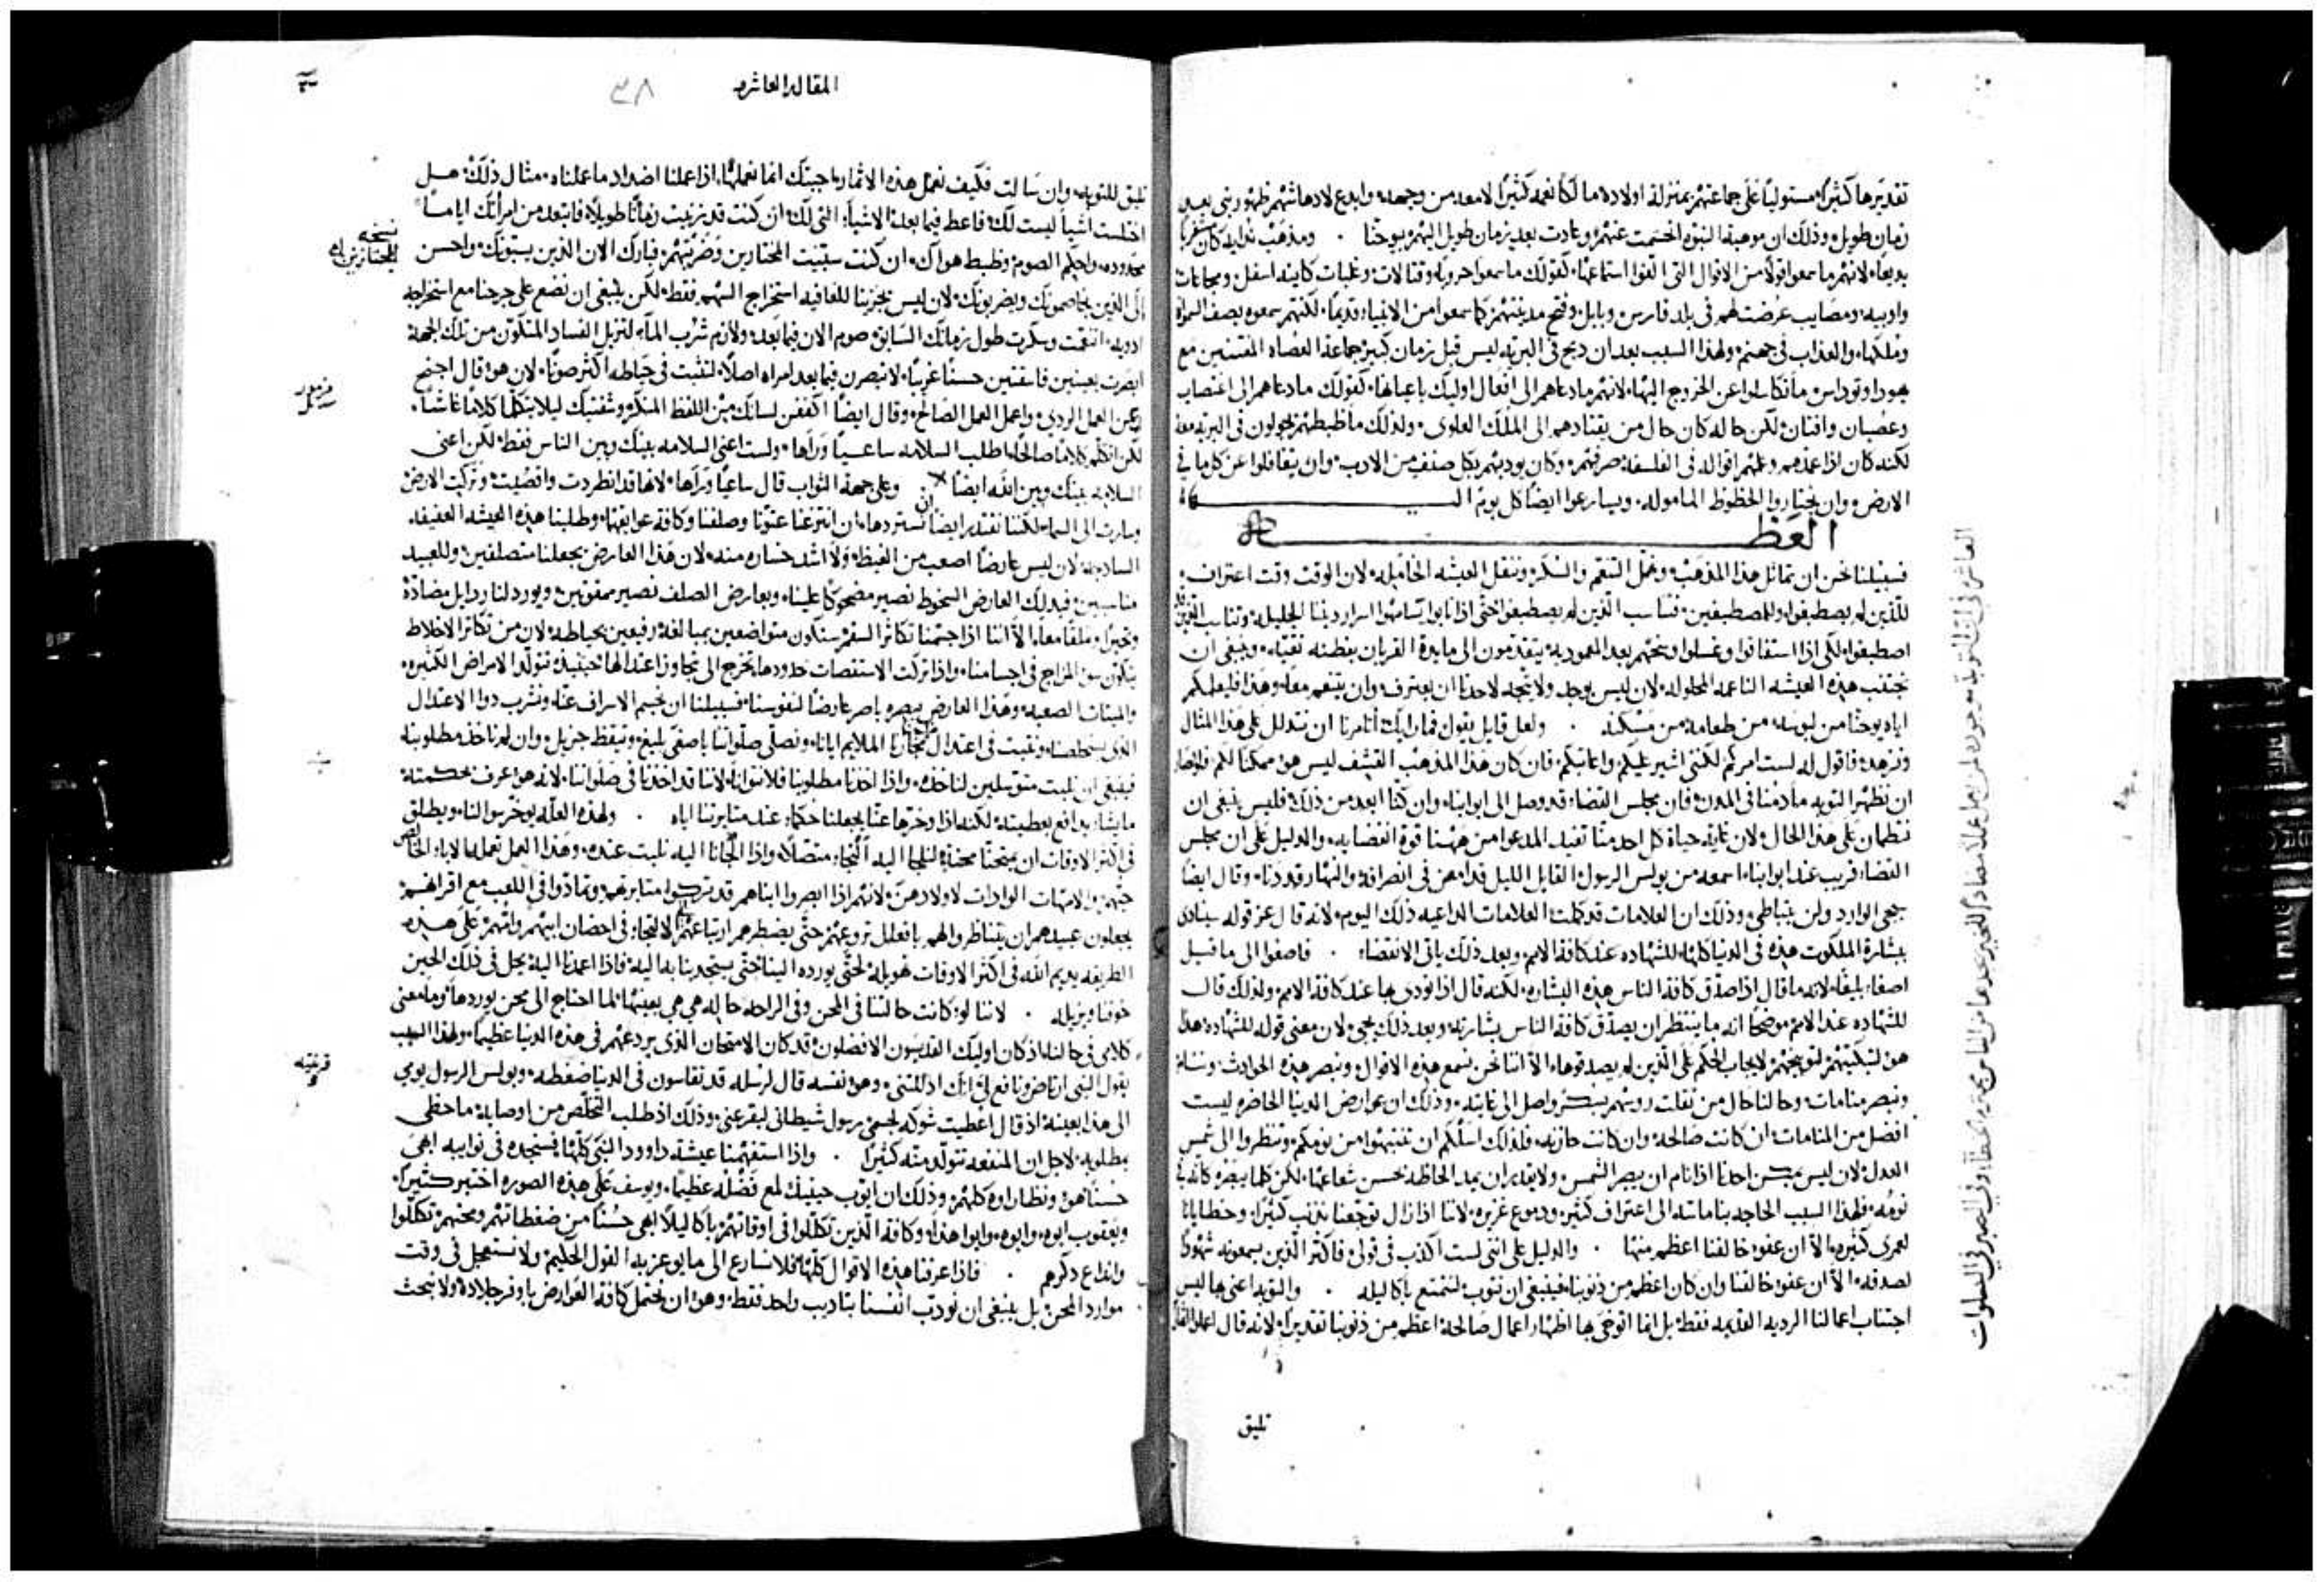 تقديرها كثيرًا مستوليًا على جماعتهم بمنزلة اولاده مالكًا نعمه كثيرًا لامعه من وجهه وابدع لادهاشهم ظهور نبي بعد
زمان طويل وذلك ان موهبة النبوه انحسمت عنهم وعادت بعد زمان طويل اليهم بيوحنا . ومذهب ندايه كان
بديعًا لانهم ما سمعوا قولًا من الاقوال التي الفوا استماعها كقولك ما سمعوا حروبًا وقتالات وغلبات كاينه اسفل ومجاعات
واوبيه ومصايب عرضت لهم في بلد فارس وبابل وفتح مدينتهم كما سمعوا من الانبياء قديمًا لكنهم سمعوه يصف السموات
وملكها والعذاب في جهنم ولهذا السبب بعد ان ذبح في البريه ليس قبل زمان كبير جماعة العصاه المفتنين مع
يهودا وتوداس ما تكاسلوا عن الخروج اليها لانهم ما دعاهم الى افعال اوليك باعيانها كقولك ما دعاهم الى اغتصاب
وعصيان وافتتان لكن حاله كان حال من يقتادهم الى الملك العلوي ولذلك ما ضبطهم يجولون في البريه معه
لكنه كان اذا عمدهم وعلمهم اقواله في الفلسفه صرفهم وكان يودبهم بكل صنف من الادب وان يتغافلوا عن كل ما في
الارض وان يختاروا الحظوظ المأموله ويسارعوا ايضًا كل يوم اليها
العظه
فسبيلنا نحن ان نماثل هذا المذهب ونهمل التنعم والسكر وننقل العيشه الخامله لان الوقت وقت اعتراف
للذين لم يصطبغوا وللمصطبغين فتاسب الذين لم يصطبغوا حتى اذا تابوا يساهموا اسرار ديننا الجليله وتناسب الذين
اصطبغوا لكي اذا استفاقوا وغسلوا وسخهم بعد المعموديه يتقدمون الى مايدة القربان بفطنه نقيه وينبغي ان
نجتنب هذه العيشه الناعمه المحلوله لان ليس يوجد ولا يتجه لاحدنا ان يعترف وان يتنعم معًا وهذا فليعلمكم
اياه يوحنا من لبوسه من طعامه من مسكنه . ولعل قايل يقول فما رايك اتامرنا ان نتذلل على هذا المثال
ونزهد فاقول له لست امركم لكنني اشير عليكم واعاتبكم فان كان هذا المذهب القشف ليس هو ممكنًا لكم
ان نظهر التوبه ما دمنا في المدن فان مجلس القضاء قد وصل الى ابوابنا وان كنا ابعد من ذلك فليس ينبغي ان
نطمان على هذا الحال لان غاية حياة كل احد منا تفيد المدعوا من ههنا قوة انقضايه والدليل على ان مجلس
القضاء قريب عند ابوابنا اسمعه من بولس الرسول القايل الليل قد امعن في انصرافه والنهار قد دنا وقال ايضًا
يجي الوارد ولن يتباطى وذلك ان العلامات قد كملت العلامات الداعيه ذلك اليوم لانه قال عز قوله سينادى
ببشارة الملكوت هذه في الدنيا كلها للشهاده عند كافة الامم وبعد ذلك ياتي الانقضاء . فاصغوا الى ما قيل
اصغاء بليغًا لانه ما قال اذا صدق كافة الناس هذه البشاره لكنه قال اذا نودي بها عند كافة الامم ولذلك قال
للشهاده عند الامم موضحًا انه ما ينتظر ان يصدق كافة الناس بشارته وبعد ذلك يجي لان معنى قوله للشهاده هذا
هو لتبكيتهم لتوبيخهم لايجاب الحكم على الذين لم يصدقوها الا اننا نحن نسمع هذه الاقوال ونبصر هذه الحوادث وننام
ونبصر منامات وحالنا حال من ثقلت رووسهم بسكر واصل الى غايته وذلك ان عوارض الدنيا الحاضره ليست
افضل من المنامات ان كانت صالحه وان كانت حازنه فلذلك اسلكم ان تنتبهوا من نومكم وتنظروا الى شمس
العدل لان ليس يمكن احدنا اذا نام ان يبصر الشمس ولا يقدر ان يمد الحاظه نحو حسن شعاعها لكن كلما يبصره كانه في
نومه فلهذا السبب الحاجه بنا ماسه الى اعتراف كثير ودموع غزيره لاننا اذا زال توجعنا نذنب كثيرًا وخطايانا
لعمري كثيره الا ان عفو خالقنا اعظم منها . والدليل على انني لست اكذب في قولي فاكثر الذين يسمعونه شهود
لصدقه الا ان عفو خالقنا وان كان اعظم من ذنوبنا فينبغي ان نتوب لنتمتع باكاليله . والتوبه اعني بها ليس
اجتناب اعمالنا الرديه القديمه فقط بل انما اتوخى بها اظهار اعمال صالحه اعظم من ذنوبنا تقديرًا لانه قال اعملوا اثمارًا
تليق
المقاله العاشره
٣٨
تليق للتوبه وان سالت فكيف نعمل هذه الاثمار اجبتك انما نعملها اذا عملنا اضداد ما عملناه مثال ذلك هل
اختلست اشياء ليست لك فاعط فيما بعد الاشياء التي لك ان كنت قد زنيت زمانًا طويلًا فابتعد من امراتك ايامًا
محدوده واحكم الصوم وضبط هواك ان كنت سببت المجتازين وضربتهم فبارك الان الذين يسبونك واحسن
الى الذين يخاصمونك ويضربونك لان ليس يجزينا للعافيه استخراج السهم فقط لكن ينبغي ان نضع على جرحنا مع استخراجه
ادويه اتنعمت وسكرت طول زمانك السابق صوم الان فيما بعد ولازم شرب الماء لتزيل الفساد المتكون من تلك الجهه
ابصرت بعينين فاسقتين حسنًا غريبًا لا تبصرن فيما بعد امراه اصلًا لتثبت في حياطه اكثر صونًا لان هو قال اجنح
عن العمل الردي واعمل العمل الصالح وقال ايضًا اكففن لسانك من اللفظ المنكر وشفتيك ليلا يتكلما كلامًا غاشًا
لكن اتكلم كلامًا صالحًا اطلب السلامه ساعيًا وراها ولست اعني السلامه بينك وبين الناس فقط لكن اعني
السلامه بينك وبين الله ايضًا . وعلى جهة الثواب قال ساعيًا وراها لانها قد انطردت واقصيت وتركت الارض
وسارت الى السماء لكننا نقتدر ايضًا ان نستردها ان انتزعنا عتونا وصلفنا وكافة عوايقها وطلبنا هذه العيشه العفيفه
الساذجه لان ليس عارضًا اصعب من الغيظ ولا اشد خساره منه لان هذا العارض يجعلنا متصلفين وللعبيد
مناسبين فبذلك العارض السخوط نصير مضحوكًا علينا وبعارض الصلف نصير ممقوتين ويورد لنا رذايل مضاده
وتجبرًا وملقًا معًا الا اننا اذا حسمنا تكاثر السقم سنكون متواضعين بمبالغه رفيعين بحياطه لان من تكاثر الاخلاط
يتكون سو المزاج في اجسامنا واذا تركت الاستقصات حدودها تخرج الى تجاوز اعتدالها حينيذ تتولد الامراض الكثيره
والميتات الصعبه وهذا العارض يبصره باصر عارضًا لنفوسنا فسبيلنا ان نحسم الاسراف عنا ونشرب دوا الاعتدال
الذي يخلصنا ونثبت في اعتدال مجازنا الملايم ايانا ونصلي صلواتنا باصغاء بليغ وتيقظ جزيل وان لم ناخذ مطلوبنا
فينبغي ان نلبث متوسلين لناخذه واذا اخذنا مطلوبنا فلا نتوانا لاننا قد اخذنا في صلواتنا لانه هو عرف بحكمته
ما يشاء يدافع بعطيته لكنه اذا وخرها عنا يجعلنا حكماء عند مثابرتنا اياه . ولهذه العله يوخر سوالنا ويطلق
في اكثر الاوقات ان يمتحنا محنه لنلجا اليه التجاء متصلًا واذا التجانا اليه نلبث عنده وهذا العمل تعمله الاباء
والامهات الوالدات لاولادهن لانهم اذا ابصروا ابناهم قد تركوا مثابرتهم وتمادوا في اللعب مع اقرانهم
يجعلون عبيدهم ان يتناظروا لهم بافعال تروعهم حتى يضطرهم ارتياعهم الى الالتجاء في احضان ابيهم وامهم على هذه
الطريقه يديم الله في اكثر الاوقات تهويله لا حتى يورده الينا حتى يستجذبنا به اليه فاذا اعدنا اليه يحل في ذلك الحين
خوفنا ويزيله . لاننا لو كانت حالنا في المحن وفي الراحه حاله هي هي بعينها لما احتاج الى محن يوردها وما معنى
كلامي في حالنا اذ كان اوليك القديسون الافضلون قد كان الامتحان الذي يردعهم في هذه الدنيا عظيمًا ولهذا السبب
يقول النبي انه نافع لي انك اذللتني وهو نفسه قال لرسله قد تقاسون في الدنيا ضغطه وبولس الرسول يومي
الى هذا بعينه اذ قال اعطيت شوكه لجسمي رسول شيطاني ليقرعني وذلك اذ طلب التخلص من اوصابه ما حظي
بمطلوبه لاجل ان المنفعه تتولد منه كثيرًا . واذا استفهمنا عيشة داوود النبي كلها فسنجده في نوايبه ابهى
حسنًا هو ونظراوه كلهم وذلك ان ايوب حينيذ لمع فضله عظيمًا ويوسف على هذه الصوره اختبر كثيرًا
ويعقوب ابوه وابوه وابو هذا وكافة الذين تكللوا في اوقاتهم باكاليل ابهى حسنًا من ضغطاتهم ومحنهم تكللوا
واذاع ذكرهم . فاذا عرفنا هذه الاقوال كلها فلا نسارع الى ما يوعز به القول الحكيم ولا نستعجل في وقت
موارد المحن بل ينبغي ان نودب انفسنا بتاديب واحد فقط وهو ان نحتمل كافة العوارض باوفر جلاده ولا نبحث
نسخه
المجتازين
مزمور